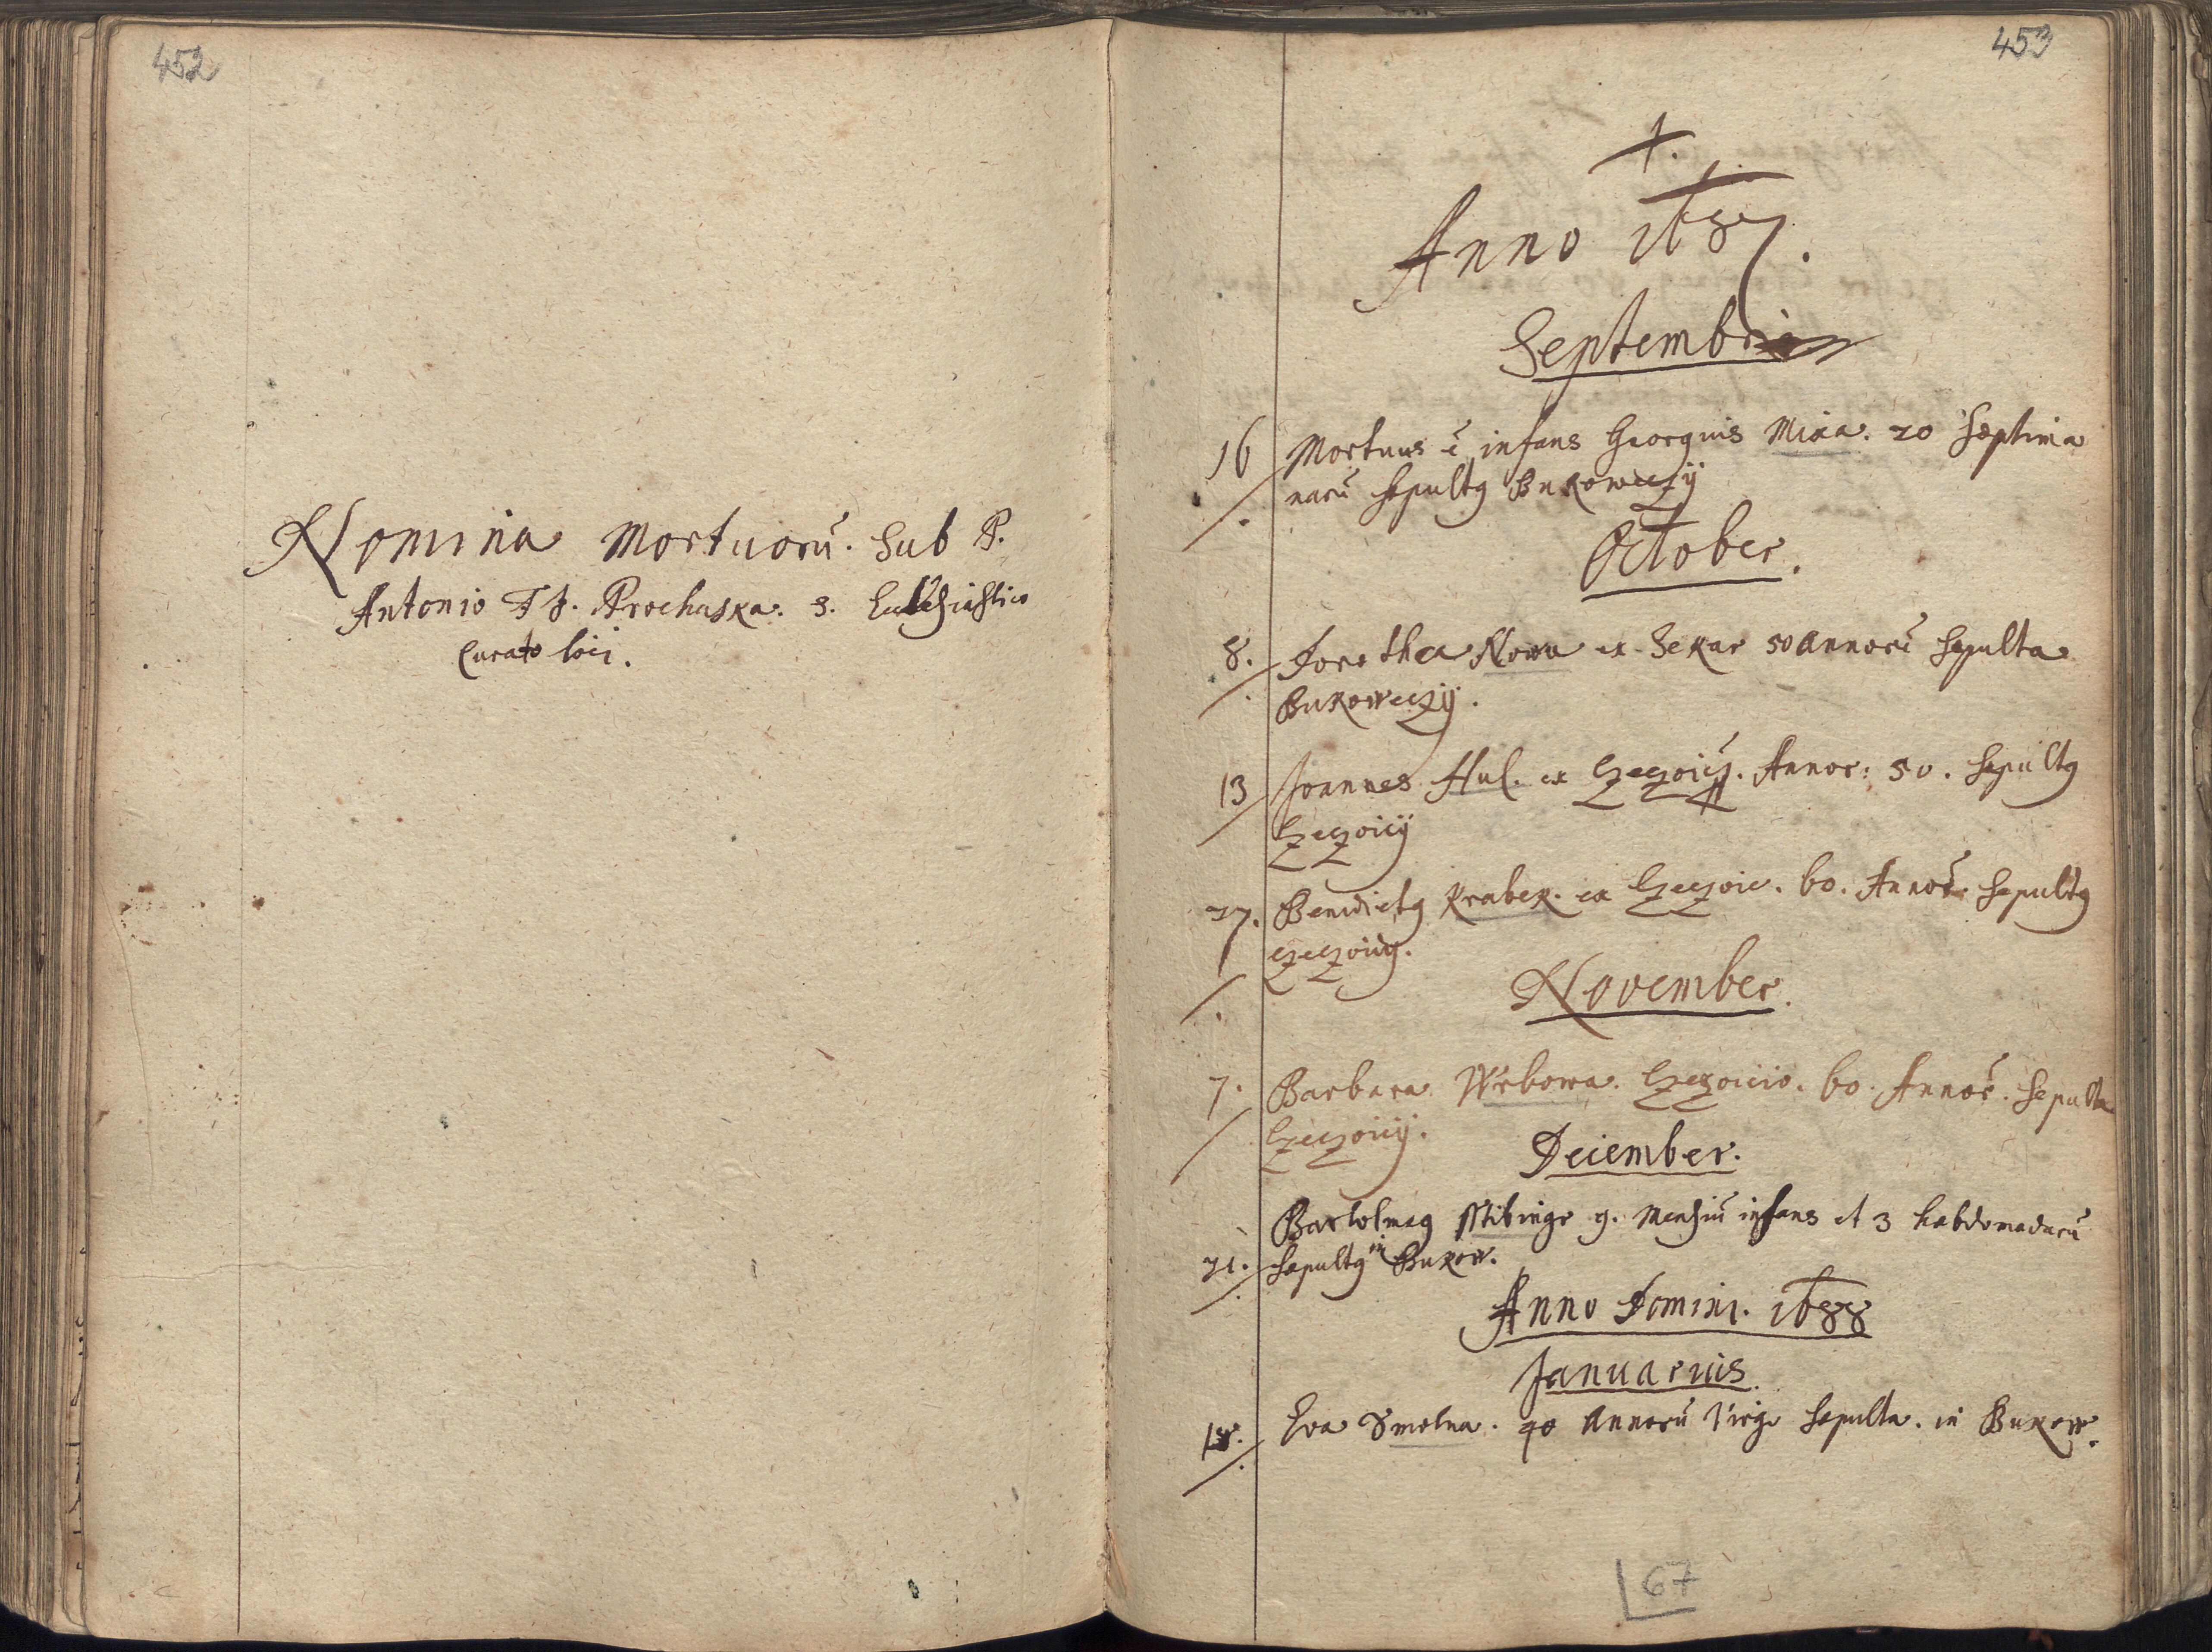 452
Nomina Mortuorũ. Sub P.
Antonio F J. Prochaska. 3. Ecclesiastico
Curato loci.
453
Anno 1687.
Septembris
16 Mortuus ẽ infans Georgius Mixa. 20 septima
narũ sepultg Bukoweczij
October.
8. Dorothea Nowa ex Sekar 50 Annorũ sepulta
Bukoweczij.
13 Joannes Hul. ex Czeczoicz. Annor: 50. sepultg
Czeczoicij
27. Benedictg Krabek. ex Czeczoic. 60. Annor̃. sepultg
Czeczoicij.
November.
7. Barbara Wrbowa. Czeczoicio. 60. Annor̃. sepulta
Czeczoicij.
December.
Bartolmeg Sstibingr 9. Mensiũ infans et 3 hebdomadarũ
21. sepultg in Bukow.
Anno Domini. 1688
Januarius.
18. Eva Smolna. 40 Annorũ Virgo sepulta. in Bukow.
67